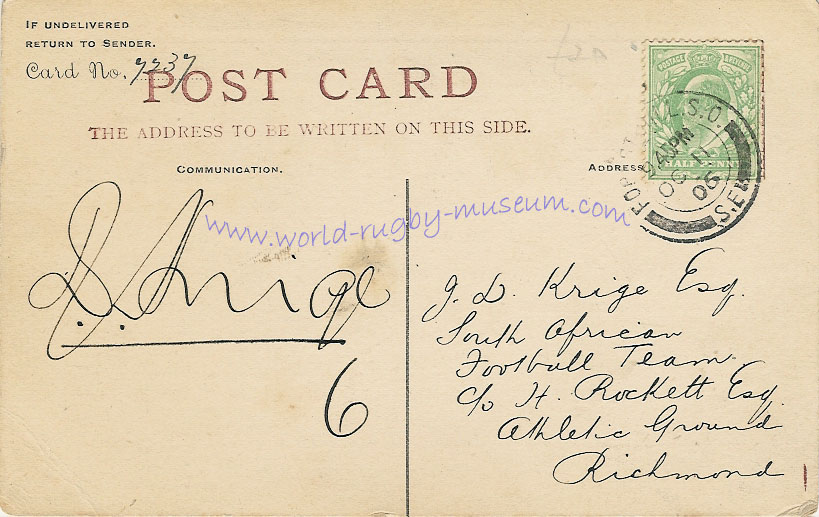 IF UNDELIVERED
RETURN TO SENDER.
Card No. 7237
POST CARD
THE ADDRESS TO BE WRITTEN ON THIS SIDE.
COMMUNICATION.
ADDRESS
POSTAGE REVENUE
HALF PENNY
L.S.O.
OC
06
S.E.
www.world-rugby-museum.com
J. D. Krige
6
J. D. Krige Esq.
South African
Football Team
c/o H. Rockett Esq
Athletic Ground
Richmond